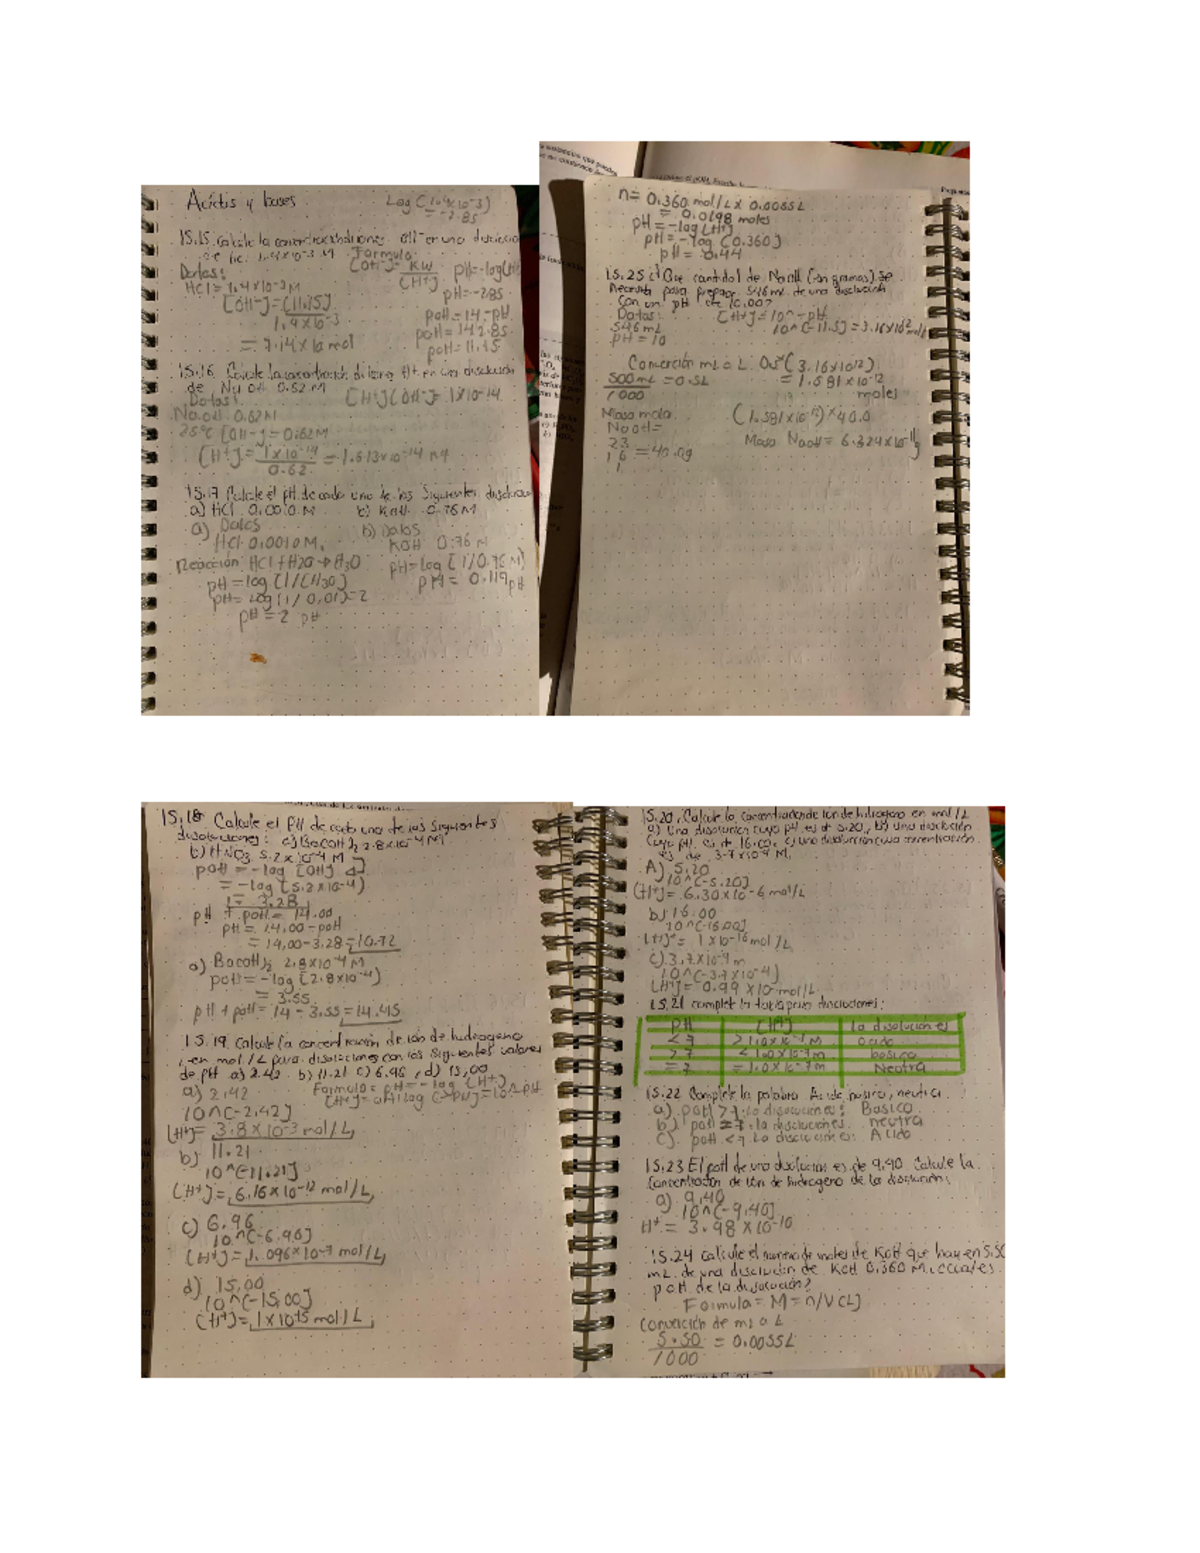 Acidos y bases
Log (1.4x10-3)
= -2.85
15.15. Calcule la concentración de iones OH- en una disolución
de HCl 1.4x10-3 M
Formula:
Datos:
[OH-] = KW
[H+]
HCl = 1.4x10-3 M
pH = -log[H+
pH = -2.85
pOH = 14 - pH
1.4x10-3
pOH = 11.15
15.16 Calcule la concentración de iones H+ en una disolución
de NaOH 0.62 M
Datos:
[H+][OH-] = 1x10-14
NaOH 0.62 M
25°C [OH-] = 0.62 M
[H+] = 1x10-14 = 1.613x10-14 M
0.62
15.17 Calcule el pH de cada una de las siguientes disoluc
a) HCl 0.0010 M b) KOH 0.76 M
a) Datos
HCl 0.0010 M
b) Datos
KOH 0.76 M
Reacción: HCl + H2O → H3O
pH = log [1/(H3O]
pH = Log (1/0.01) = 2
pH = 2 pH
pH = log [1/0.76 M)
pH = 0.119 pH
n = 0.360 mol/L x 0.0055 L
= 0.0198 moles
pH = -log [H+]
pH = -log [0.360]
pH = 0.44
15.25 ¿Que cantidad de NaOH (en gramos) se
necesita para preparar 546 mL de una disolución
con un pH de 10.00?
Datos:
546 mL
pH = 10
[H+] = 10^-pH
Conversión mL a L
500 mL = 0.5 L
1000
= 1.581x10-12
moles
Masa mola
NaOH =
23
16
1
Masa NaOH =
15.18 Calcule el pH de cada una de las siguientes
disoluciones: a) Ba(OH)2 2.8x10-4 M
b) HNO3 5.2x10-4 M
pOH = -log [OH]
= -log [5.2x10-4)
= 3.28
pH + pOH = 14.00
pH = 14.00 - pOH
= 14.00 - 3.28 = 10.72
a) Ba(OH)2 2.8x10-4 M
pOH = -log [2.8x10-4)
= 3.55
pH + pOH = 14 - 3.55 = 14.45
15.19. Calcule la concentración de ion de hidrogeno
en mol/L para disoluciones con los siguientes valores
de pH a) 2.42 b) 11.21 c) 6.96, d) 15,00
Formula = pH = -log [H+]
a) 2.42
10^[-2.42]
[H+] = 3.8x10-3 mol/L
b) 11.21
10^[-11.21]
[H+] = 6.16x10-12 mol/L
c) 6.96
10^[-6.96]
[H+] = 1.096x10-7 mol/L
d) 15.00
10^[-15.00]
[H+] = 1x10-15 mol/L
15.20. Calcule la concentración de ion de hidrogeno en mol/L
a) una disolución cuyo pH es de 5.20, b) una disolución
cuyo pH es de 16.00, c) una disolución cuya concentración
es de 3.7x10-9 M.
A) 5.20
10^[-5.20]
[H+] = 6.30x10-6 mol/L
b) 16.00
10^[-16.00]
[H+] = 1x10-16 mol/L
[H+] = 0.99 x 10 mol/L
15.21 complet la tabla para disoluciones:
pH [H+] La disolución es
<7 >1.0x10-7 M Acido
>7 <1.00x10-7 m basico
=7 =1.0x10-7 m Neutra
15.22 Complete la palabra Acida, basica, neutra
a) pOH >7 la disolución es: Basico
b) pOH = 7 la disolución es. neutra
c). pOH <7 La disolución es: Acido
15.23 El pOH de una disolución es de 9.40 Calcule la
concentración de ion de hidrogeno de la disolución:
a) 9.40
10^[-9.40]
H+ = 3.98x10-10
15.24 calcule el numero de moles de KOH que hay en 5.50
mL de una disolución de KOH 0.360 M. ¿cual es
pOH de la disolución?
Formula = M = n/V(L)
Conversión de mL a L
5.50 = 0.0055 L
1000